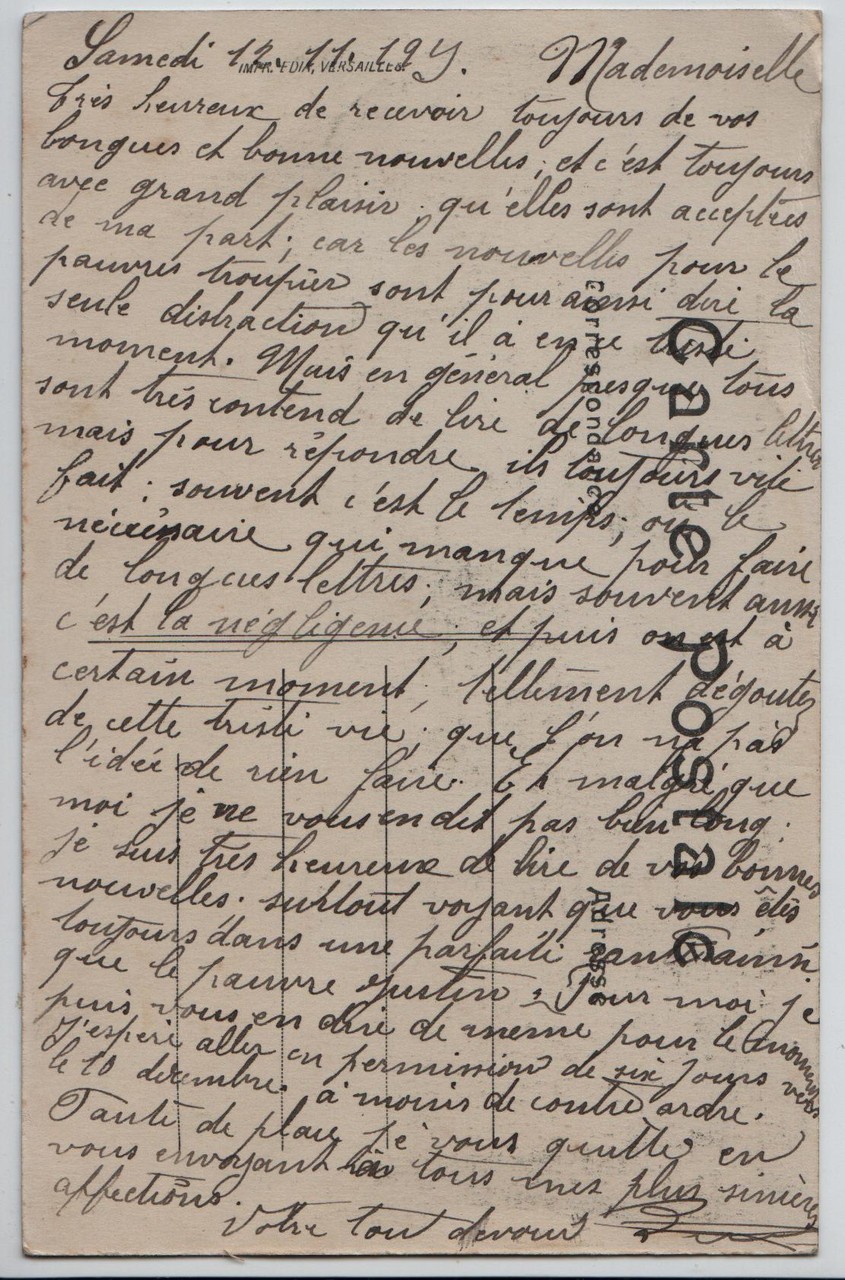 Samedi 12. 11. 19
Mademoiselle
IMPR. EDIA, VERSAILLES.
Très heureux de recevoir toujours de vos
longues et bonne nouvelles, et c'est toujours
avec grand plaisir qu'elles sont acceptés
de ma part; car les nouvelles pour le
pauvres troupier sont pour ainsi dire la
seule distraction qu'il à en ce triste
moment. Mais en général presque tous
sont très contend de lire de longues lettres
mais pour répondre ils toujours vite
fait; souvent c'est le temps, ou le
nécessaire qui manque pour faire
de longues lettres; mais souvent aussi
c'est la négligence, et puis on est à
certain moment, tellement dégoutez
de cette triste vie; que l'on na pas
l'idée de rien faire. Et malgré que
moi je ne vous en dit pas bien long.
je suis très heureux de lire de vos bonnes
nouvelles. surtout voyant que vous êtes
toujours dans une parfaite santé ainsi
que le pauvre Justin. Pour moi je
puis vous en dire de meme pour le moment
J'espère aller en permission de six jours vers
le 10 décembre. à moins de contre ordre.
Faute de place je vous quitte en
vous envoyant à tous mes plus sincères
affections.
Votre tout dévoué
Carte postale
Correspondance
Adresse